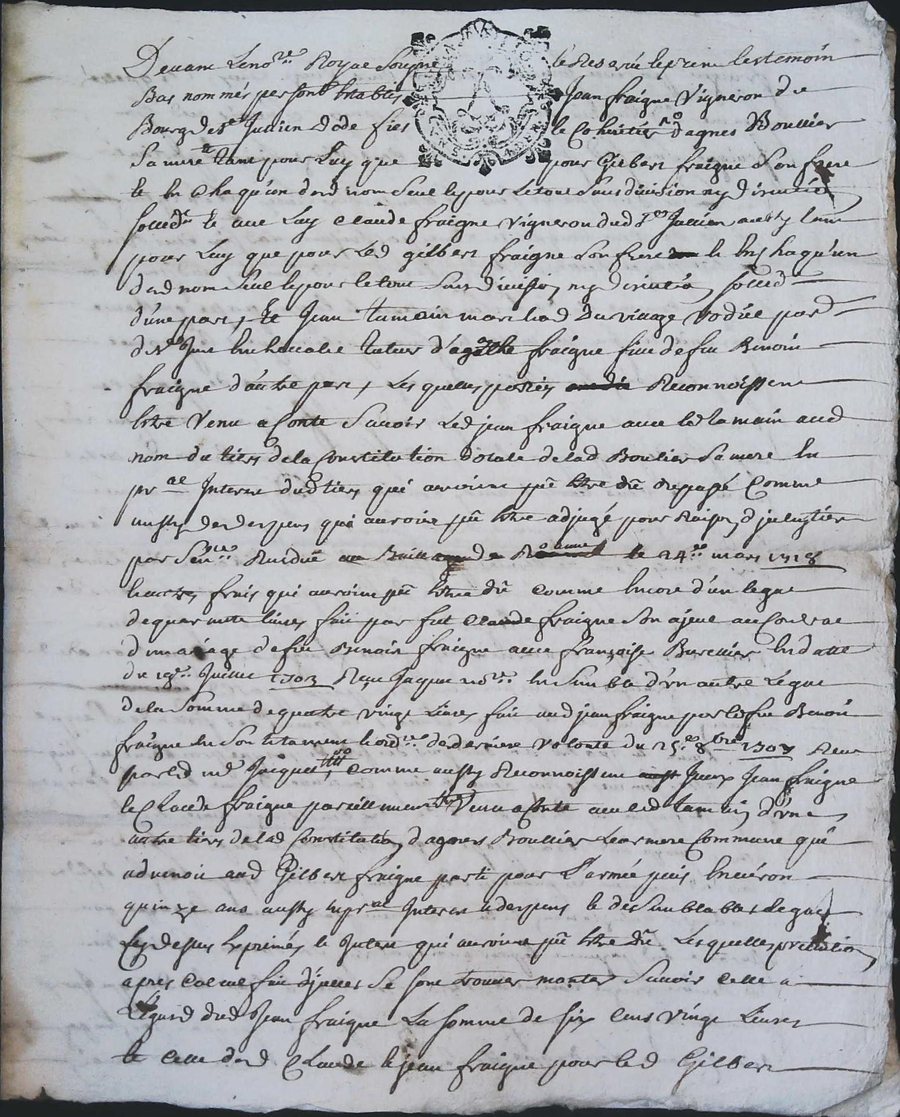 Devant Le no.re Royal Soussigné le Reservé les temoin
Bas nommés personel Establis Jean fraigne Vigneron du
Bourg de St Julien Dode fils le Cohéritier d'agnes Boullier
Sa mere tant pour Luy que pour Gilbert fraigne Son frere
Et En Chaqu'un dud nom Seul Et pour Le tout Sans division ny
solid.t Et avec Luy Claude fraigne Vigneron dud St Julien aussy tant
pour Luy que pour Led gilbert fraigne Son frere Et En Chaqu'un
dud nom Seul Et pour Le tout Sans division ny solid
d'une part, Et Jean tamain marchad du village
tuteur d'agathe fraigne fille de feu Benoit
fraigne d'autre part, Les quelles parties Reconnoissent
Etre Venu a Conte Savoir Led jean fraigne avec led tamain aud
nom du tiers de la Constitution Dotale de lad Boulier Sa mere En
pr.al Interest dud tiers qui auroient pû Etre dû Depuis Comme
aussy des despens qui auroient pû Etre adjugé pour Raison
par Sen.ce Rendue au Bailliage de Roanne le 24.e mars 1718
frais qui auroient pû Etre dû Comme Encore d'un legat
de quarante livres fait par feu Claude fraigne Son ajeul au Contrat
d'mariage de feu Benoit fraigne avec françoise Burellier En datte
du 19.e Juillet 1703 Reçu Jaquet no.re Ensemble d'un autre Legat
de la Somme de quatre vingt Livres fait aud jean fraigne par led feu Benoit
fraigne En Son testament de derniere volonté du 25.e 8bre 1707 Reçu
par led me Jacquet, Comme aussy Reconnoissent Iceux Jean fraigne
Et Claude fraigne pareillement Etre Venu a Conte avec led tamain d'un
autre tiers de lad Constitution d'agnes Boullier Leur mere Commune qui
advenoit aud Gilbert fraigne parti pour L'armée puis Environ
quinze ans aussy En pr.al Interest Et despens Et des Semblables Legat
Cy dessus Exprimés Et Interest qui auroient pû Etre dû Les quelles pretention
apres Calcul fait d'jcelles Se sont trouvés monter Savoir Celle a
L'Egard dud Jean fraigne La somme de six Cens vingt Livres
Et Celle dud Claude Et jean fraigne pour led Gilbert